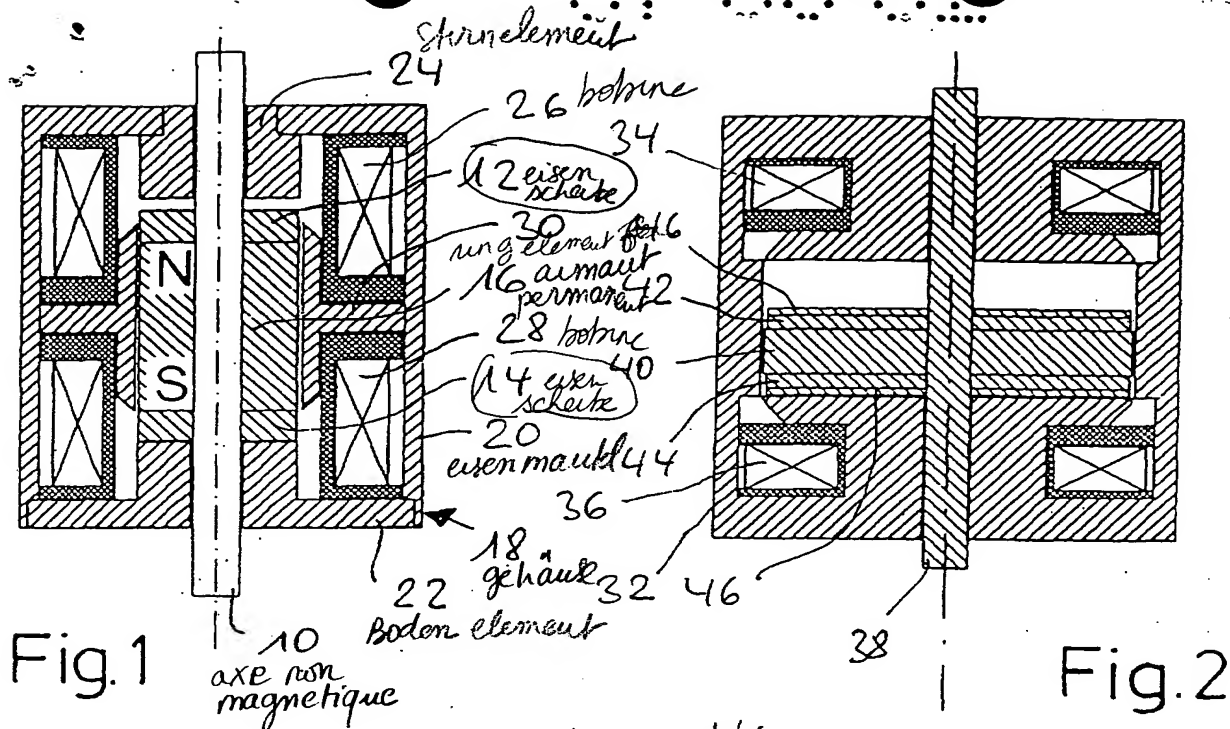 Stirnelement
24
26 bobine
34
12 eisen
scheibe
30
ring element
16 aimant
permanent
42
28 bobine
40
14 eisen
scheibe
20
eisenmantel
44
36
18
gehäuse
32
46
22
Boden element
10
axe non
magnetique
38
N
S
Fig.1
Fig.2